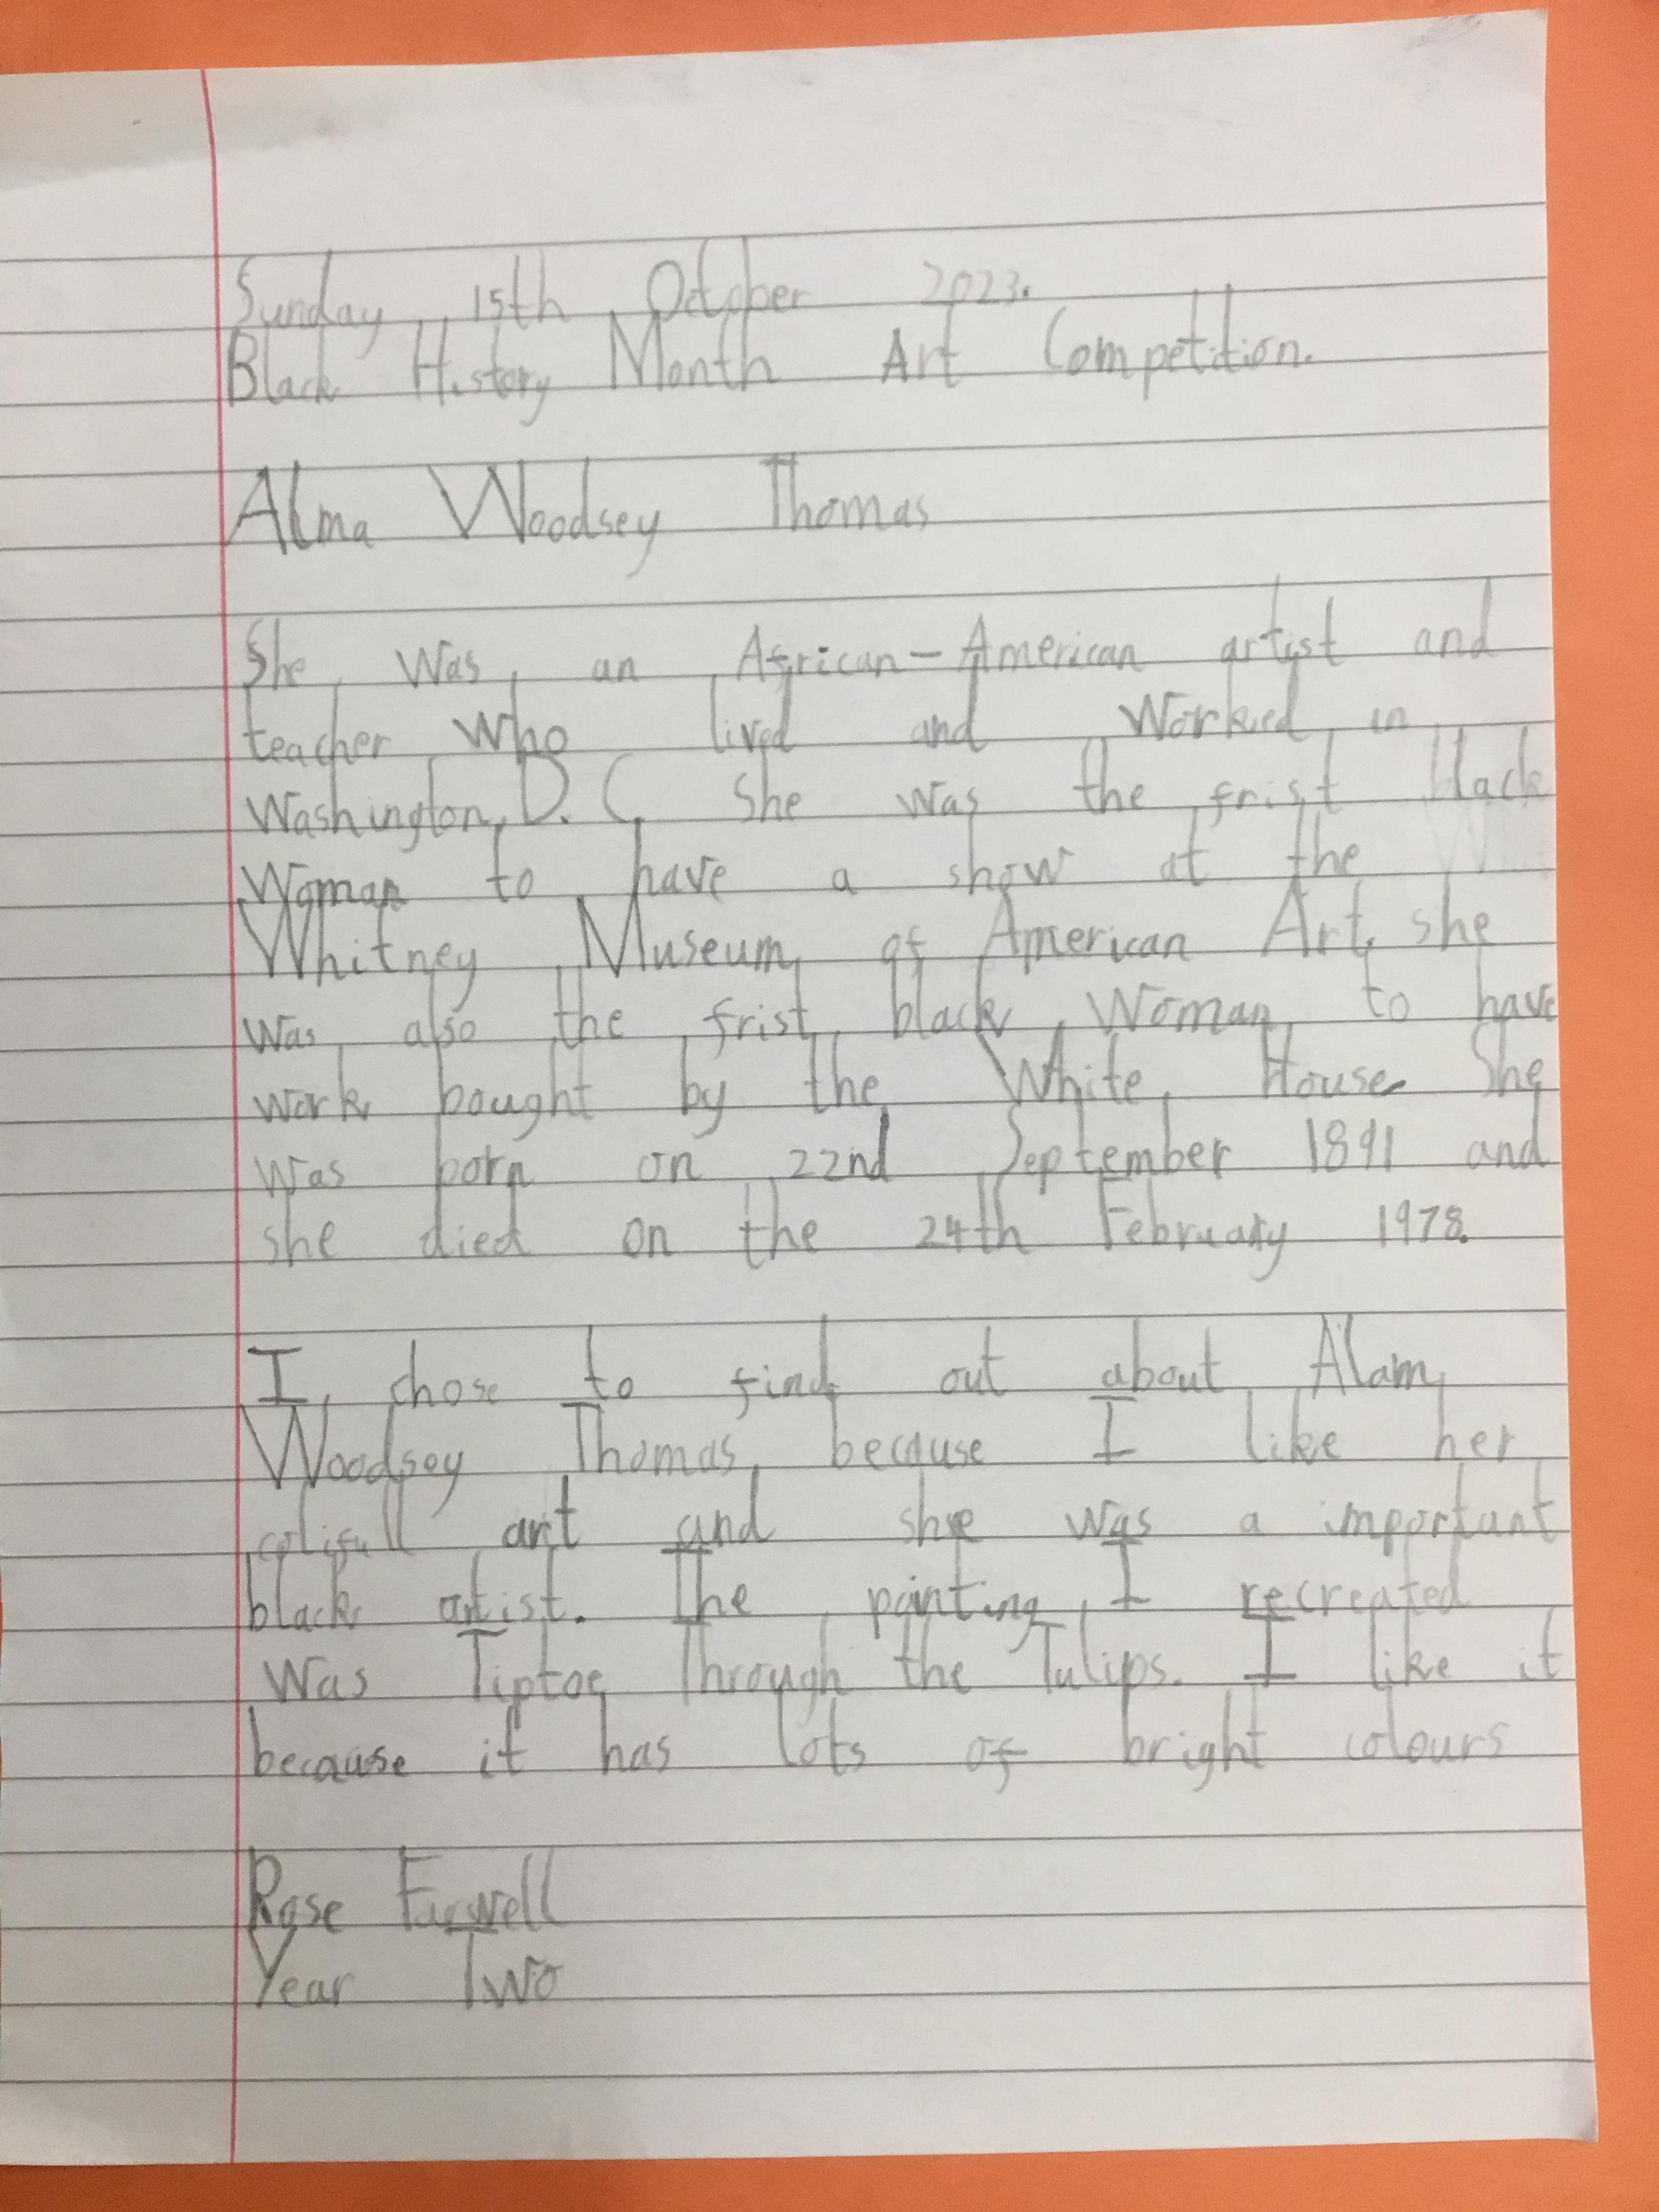 Sunday 15th October 2023.
Black History Month Art Competition.
Alma Woodsey Thomas
She was an African-American artist and
teacher who lived and worked in
Washington, D.C. She was the frist black
woman to have a show at the
Whitney Museum of American Art. she
was also the frist black woman to have
work bought by the White House. She
was born on 22nd September 1891 and
she died on the 24th February 1978.
I chose to find out about Alam
Woodsey Thomas because I like her
colifull art and she was a important
black artist. The painting I recreated
was Tiptoe Through the Tulips. I like it
because it has lots of bright colours
Rose Farwell
Year Two